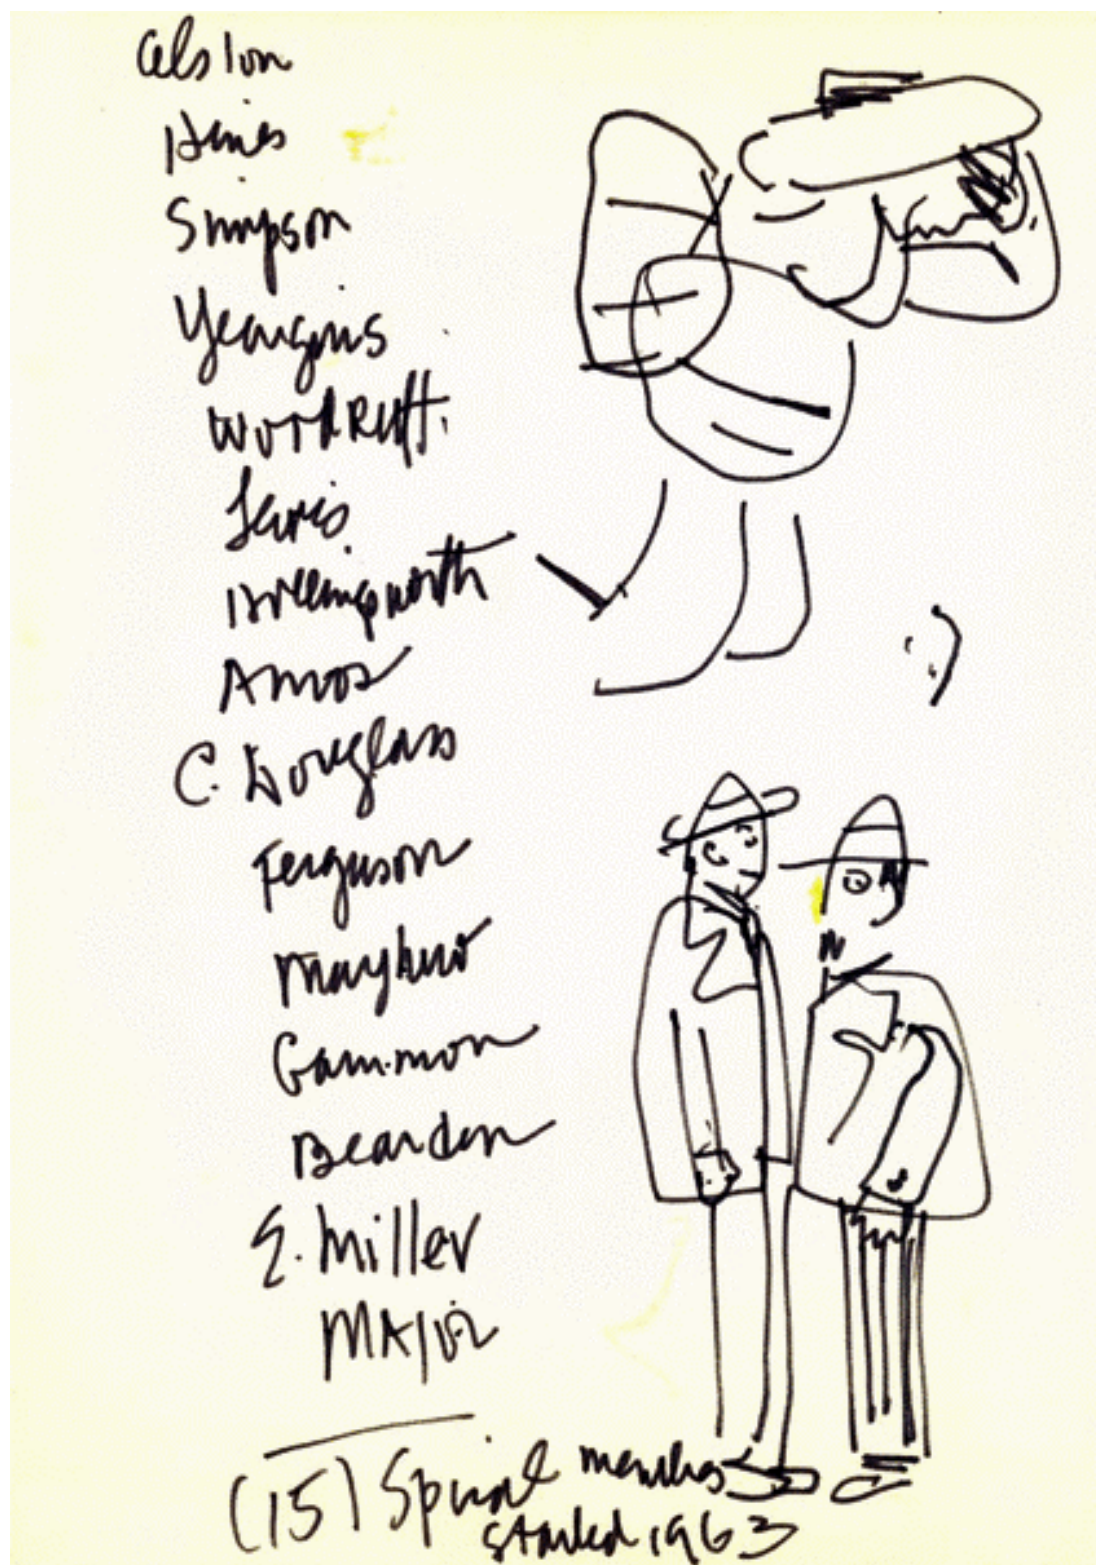 Alston
Hines
Simpson
Yeargins
WOODRUff.
Lewis
Hollingsworth
Amos
C. Douglass
Ferguson
Mayhew
Gammon
Bearden
E. Miller
MAJOR
(15) Spiral members
started 1963